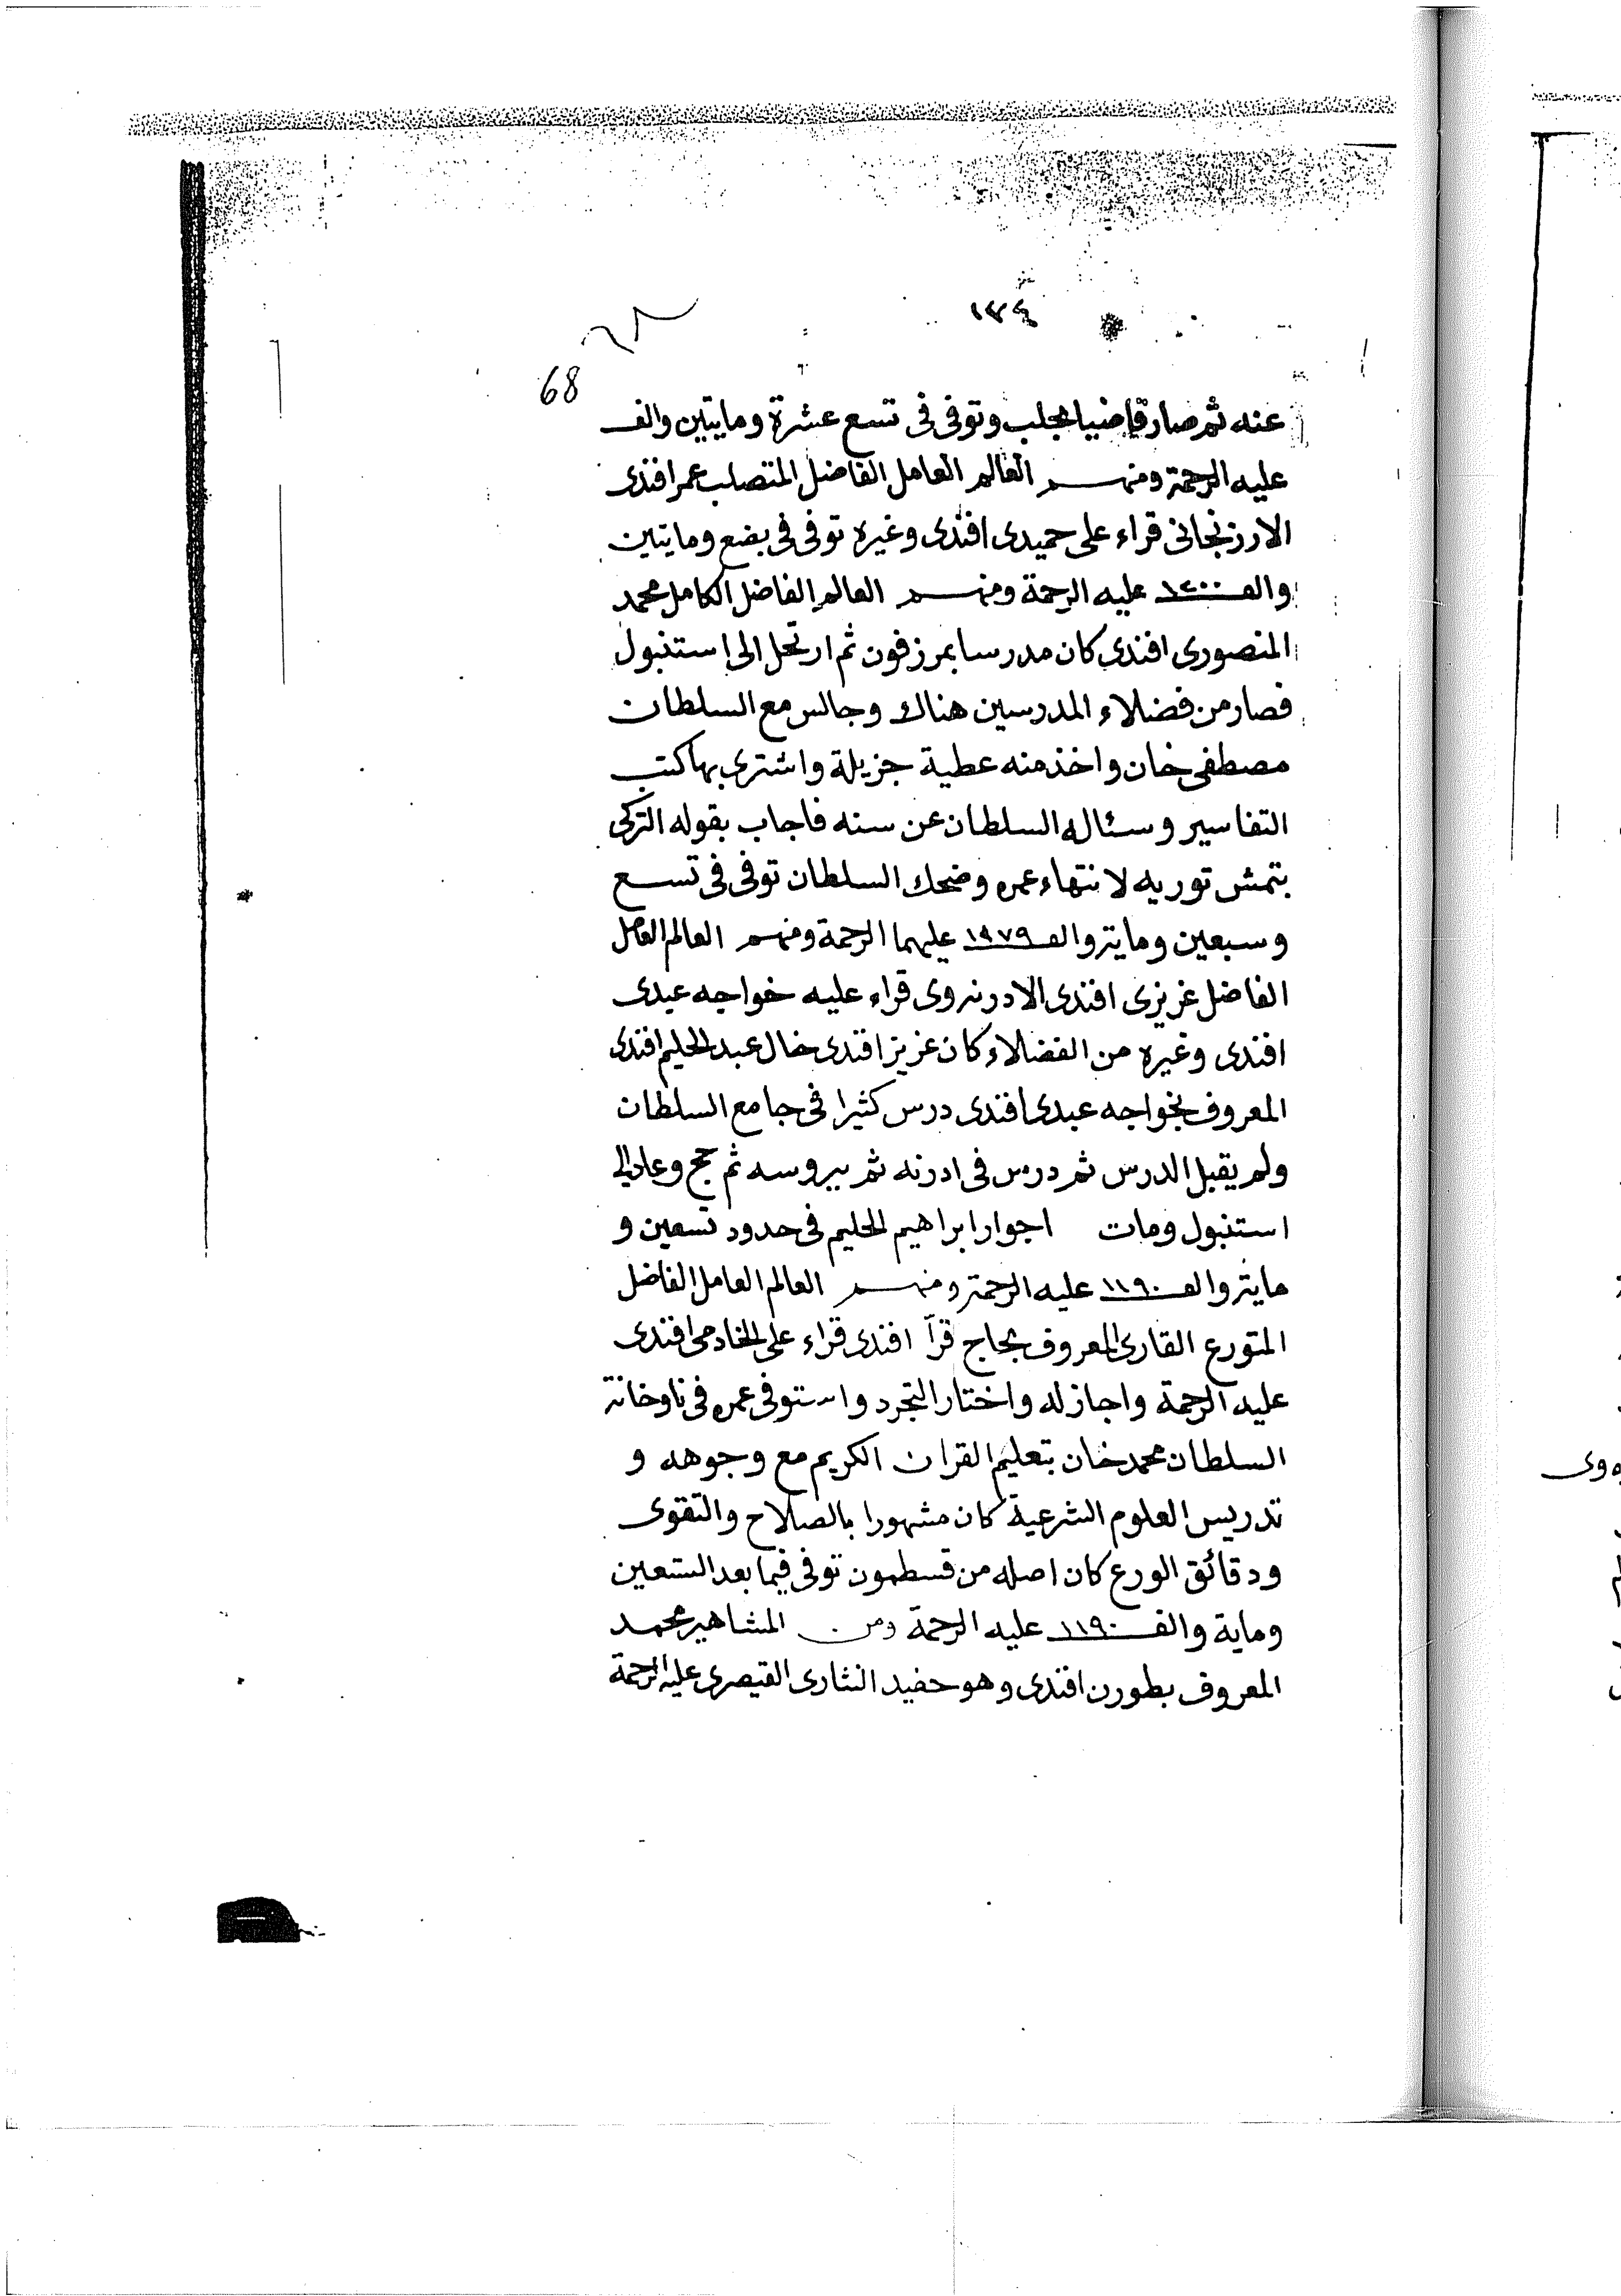 ١٣٤
68
عنه ثم صار قاضيا بحلب وتوفى فى تسع عشرة ومايتين والف
عليه الرحمة ومنهم العالم العامل الفاضل المتصلب عمر افندى
الارزنجانى قراء على حميدى افندى وغيره توفى فى بضع ومايتين
والف ١٢٠٠ عليه الرحمة ومنهم العالم الفاضل الكامل محمد
المنصورى افندى كان مدرسا بمرزفون ثم ارتحل الى استنبول
فصار من فضلاء المدرسين هناك وجالس مع السلطان
مصطفى خان واخذ منه عطية جزيلة واشترى بها كتب
التفاسير وسئاله السلطان عن سنه فاجاب بقوله التركى
بتمش توريه لانتهاء عمره وضحك السلطان توفى فى تسع
وسبعين وماية والف ١١٧٩ عليهما الرحمة ومنهم العالم العامل
الفاضل عزيزى افندى الادرنه وى قراء عليه خواجه عبدى
افندى وغيره من الفضلاء كان عزيز افندى خال عبد الحليم افندى
المعروف بخواجه عبدى افندى درس كثيرا فى جامع السلطان
ولم يقبل الدرس ثم درس فى ادرنه ثم ببروسه ثم حج وعاد الى
استنبول ومات اجوار ابراهيم الحليم فى حدود تسعين و
ماية والف ١١٩٠ عليه الرحمة ومنهم العالم العامل الفاضل
المتورع القارى المعروف بحاج قرآ افندى قراء على الخادمى افندى
عليه الرحمة واجاز له واختار التجرد واستوفى عمره فى ناوخانة
السلطان محمد خان بتعليم القران الكريم مع وجوهه و
تدريس العلوم الشرعية كان مشهورا بالصلاح والتقوى
ودقائق الورع كان اصله من قسطمون توفى فيما بعد التسعين
وماية والف ١١٩٠ عليه الرحمة ومن المشاهير محمد
المعروف بطورن افندى وهو حفيد النثارى القيصرى عليه الرحمة